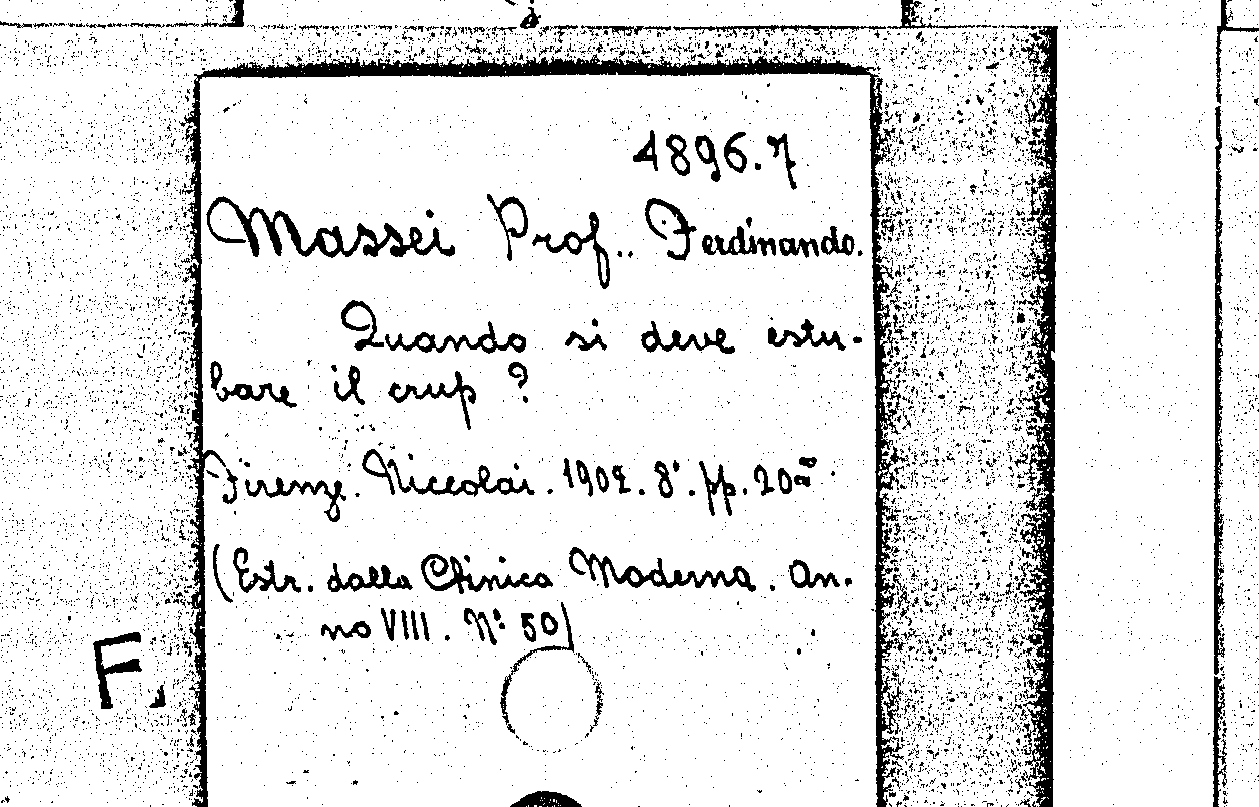 4896.7
Massei Prof.. Ferdinando.
Quando si deve estu-
bare il crup ?
Firenze. Niccolai. 1902. 8°. pp. 20
(Estr. dalla Clinica Moderna. An-
no VIII. N° 50)
F.